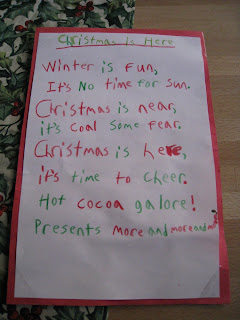 Christmas Is Here
Winter is fun,
It's No time for sun.
Christmas is near,
it's coal some fear.
Christmas is here,
it's time to cheer.
Hot cocoa galore!
Presents more and more and more